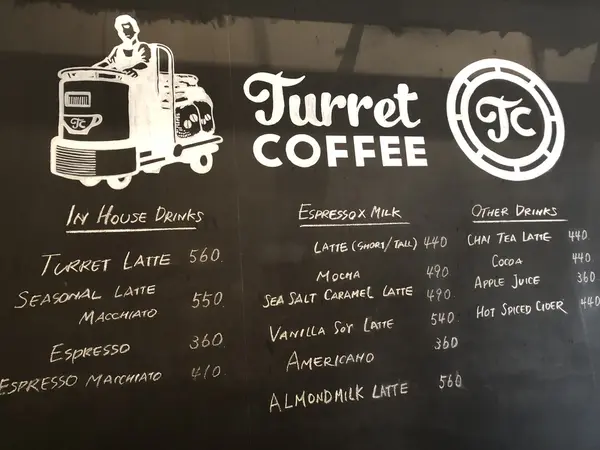 Turret
COFFEE
TC
TC
IN HOUSE DRINKS
TURRET LATTE 560.
SEASONAL LATTE
MACCHIATO 550.
ESPRESSO 360.
ESPRESSO MACCHIATO 410.
ESPRESSO X MILK
LATTE (SHORT/TALL) 440
MOCHA 490.
SEA SALT CARAMEL LATTE 490
VANILLA SOY LATTE 540
AMERICANO 360
ALMONDMILK LATTE 560
OTHER DRINKS
CHAI TEA LATTE 440.
COCOA 440.
APPLE JUICE 360
HOT SPICED CIDER 440